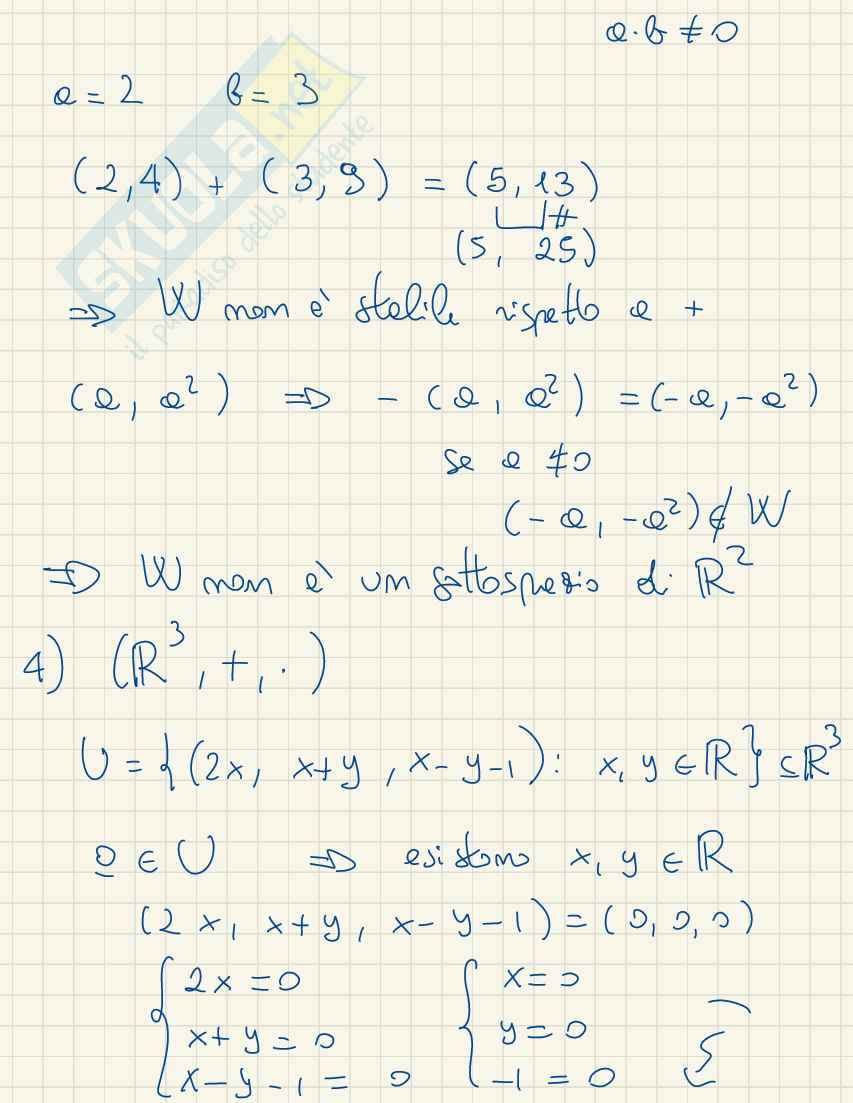 a·b ≠ 0
a = 2 b = 3
(2,4) + (3,9) = (5,13)
≠
(5, 25)
⇒ W non è stabile rispetto a +
(a, a²) ⇒ - (a, a²) = (-a, -a²)
se a ≠ 0
(-a, -a²) ∉ W
⇒ W non è un sottospazio di ℝ²
4) (ℝ³, +, ·)
U = { (2x, x+y, x-y-1) : x, y ∈ ℝ } ⊆ ℝ³
0 ∈ U ⇒ esistono x, y ∈ ℝ
(2x, x+y, x-y-1) = (0, 0, 0)
{ 2x = 0 { x = 0
x+y = 0 y = 0
x-y-1 = 0 -1 = 0
SKUOLA.net
il paradiso dello studente